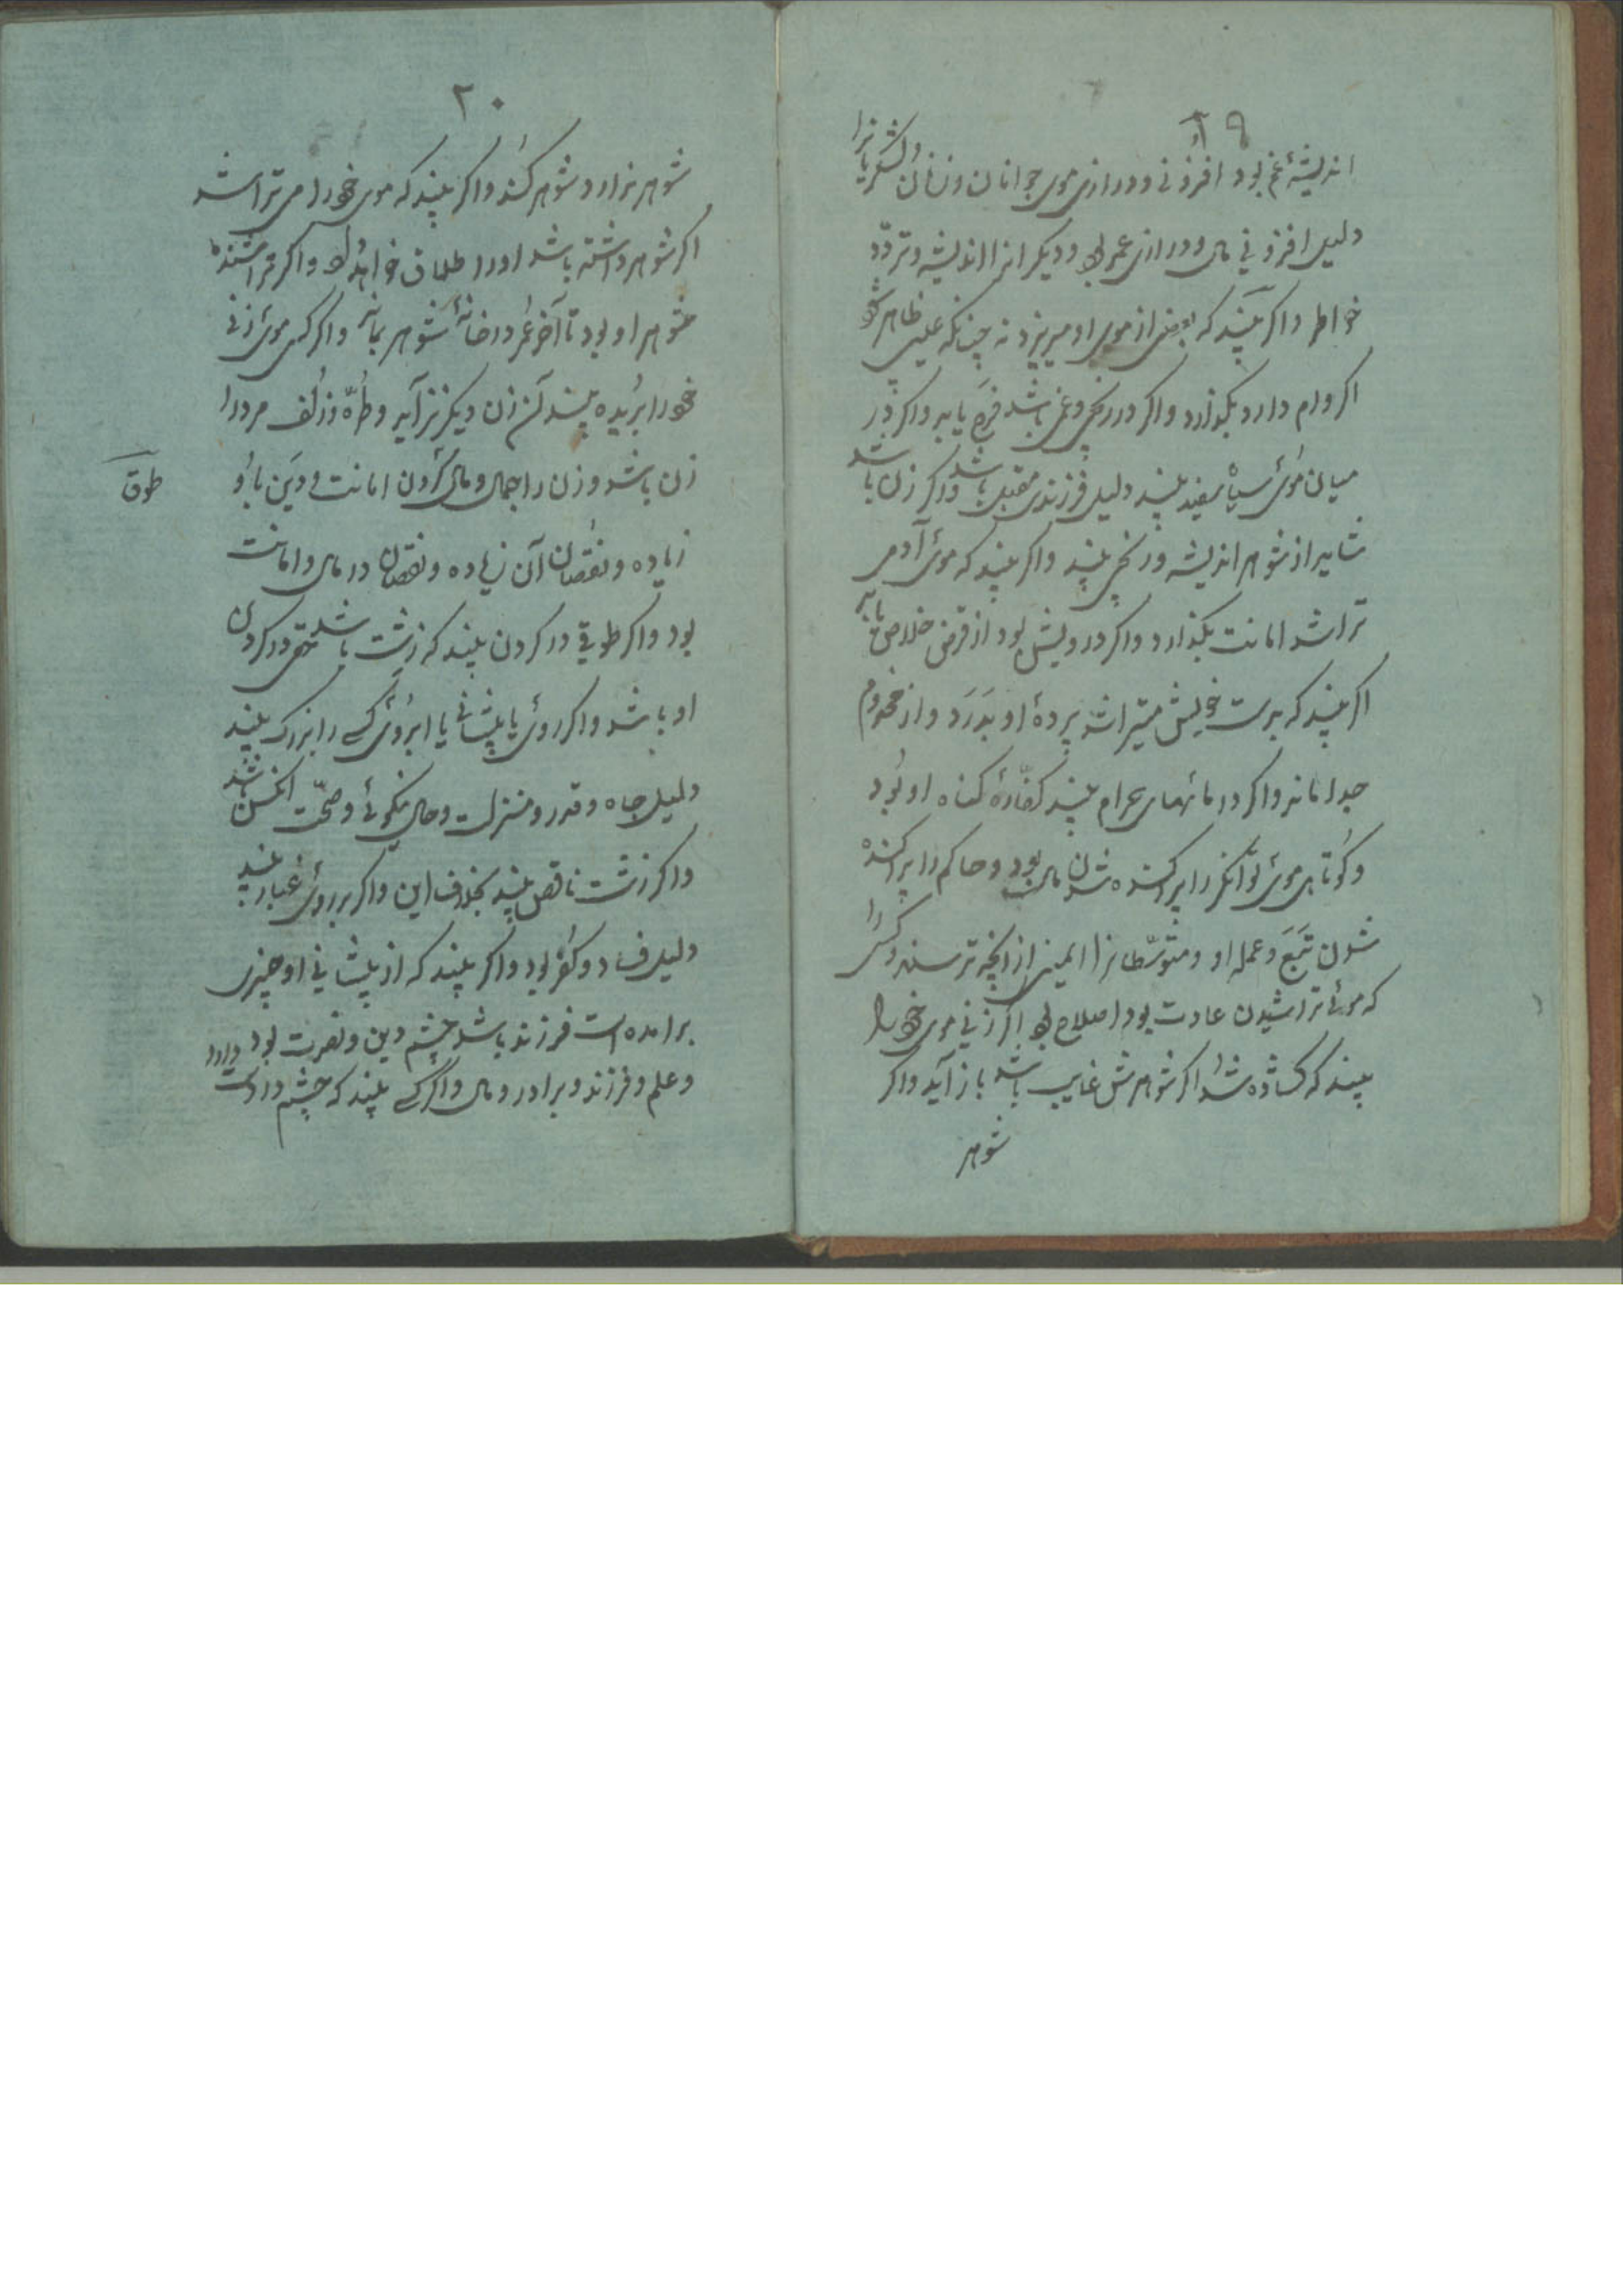 ١٩
اندیشهٔ غم بود افزونی و درازی موی جوانان و زنان و لشکریانرا
دلیل افزونی مال و درازی عمر بود و دیگرانرا اندیشه و تردّد
خواطر و اگر بیند که بعضی از موی او میریزد نه چنانکه عیبی ظاهر شود
اگر وام دارد بگذارد و اگر در رنجی و غمی باشد فرج یابد و اگر در
میان موئ سیاه سفید بیند دلیل فرزندی مقبل باشد و اگر زن باشد
شاید از شوهر اندیشه و رنجی بیند و اگر بیند که موئ آدمی
تراشد امانت بگذارد و اگر درویش بود از قرض خلاصی یابد
اگر بیند که بدست خویش میتراشد پردهٔ او بدرد و از مخدوم
جدا ماند و اگر در ماههای حرام بیند کفّارهٔ گناه او بود
و کوتاهی موئ توانگر را پراکنده شدن مال بود و حاکم را پراکنده
شدن تبع و عمله او و متوسّطانرا ایمنی از انچه ترسند و کسی را
که موئ تراشیدن عادت بود اصلاح بود اگر زنی موی خود را
بیند که گشاده شد اگر شوهرش غایب باشد باز آید و اگر
شوهر
٢٠
شوهر ندارد شوهر کند و اگر بیند که موی خود را می تراشد
اگر شوهر داشته باشد اورا طلاق خواهد داد و اگر تراشنده
شوهر او بود تا آخر عمر در خانهٔ شوهر بماند و اگر کسی موئ زنی
خود را بریده بیند آن زن دیگر نزاید و طُرّه و زلف مرد را
زن باشد و زن را جمال و مال گردن امانت و دین باد و
طوق
زیاده و نقصان آن زیاده و نقصان در مال و امانت
بود و اگر طوقی در گردن بیند که زشت باشد حقی در گردن
او باشد و اگر روئ یا پیشانی یا ابروئ کسی را بزرگ بیند
دلیل جاه و قدر و منزلت و حال نیکوئ و صحّت انکس باشد
و اگر زشت ناقص بیند بخلاف این و اگر بر روئ غبار بیند
دلیل فساد و کفر بود و اگر بیند که از پیشانی او چیزی
برامده است فرزند باشد چشم دین و بصرت بود
و علم و فرزند و برادر و مال و اگر کسی بیند که چشم